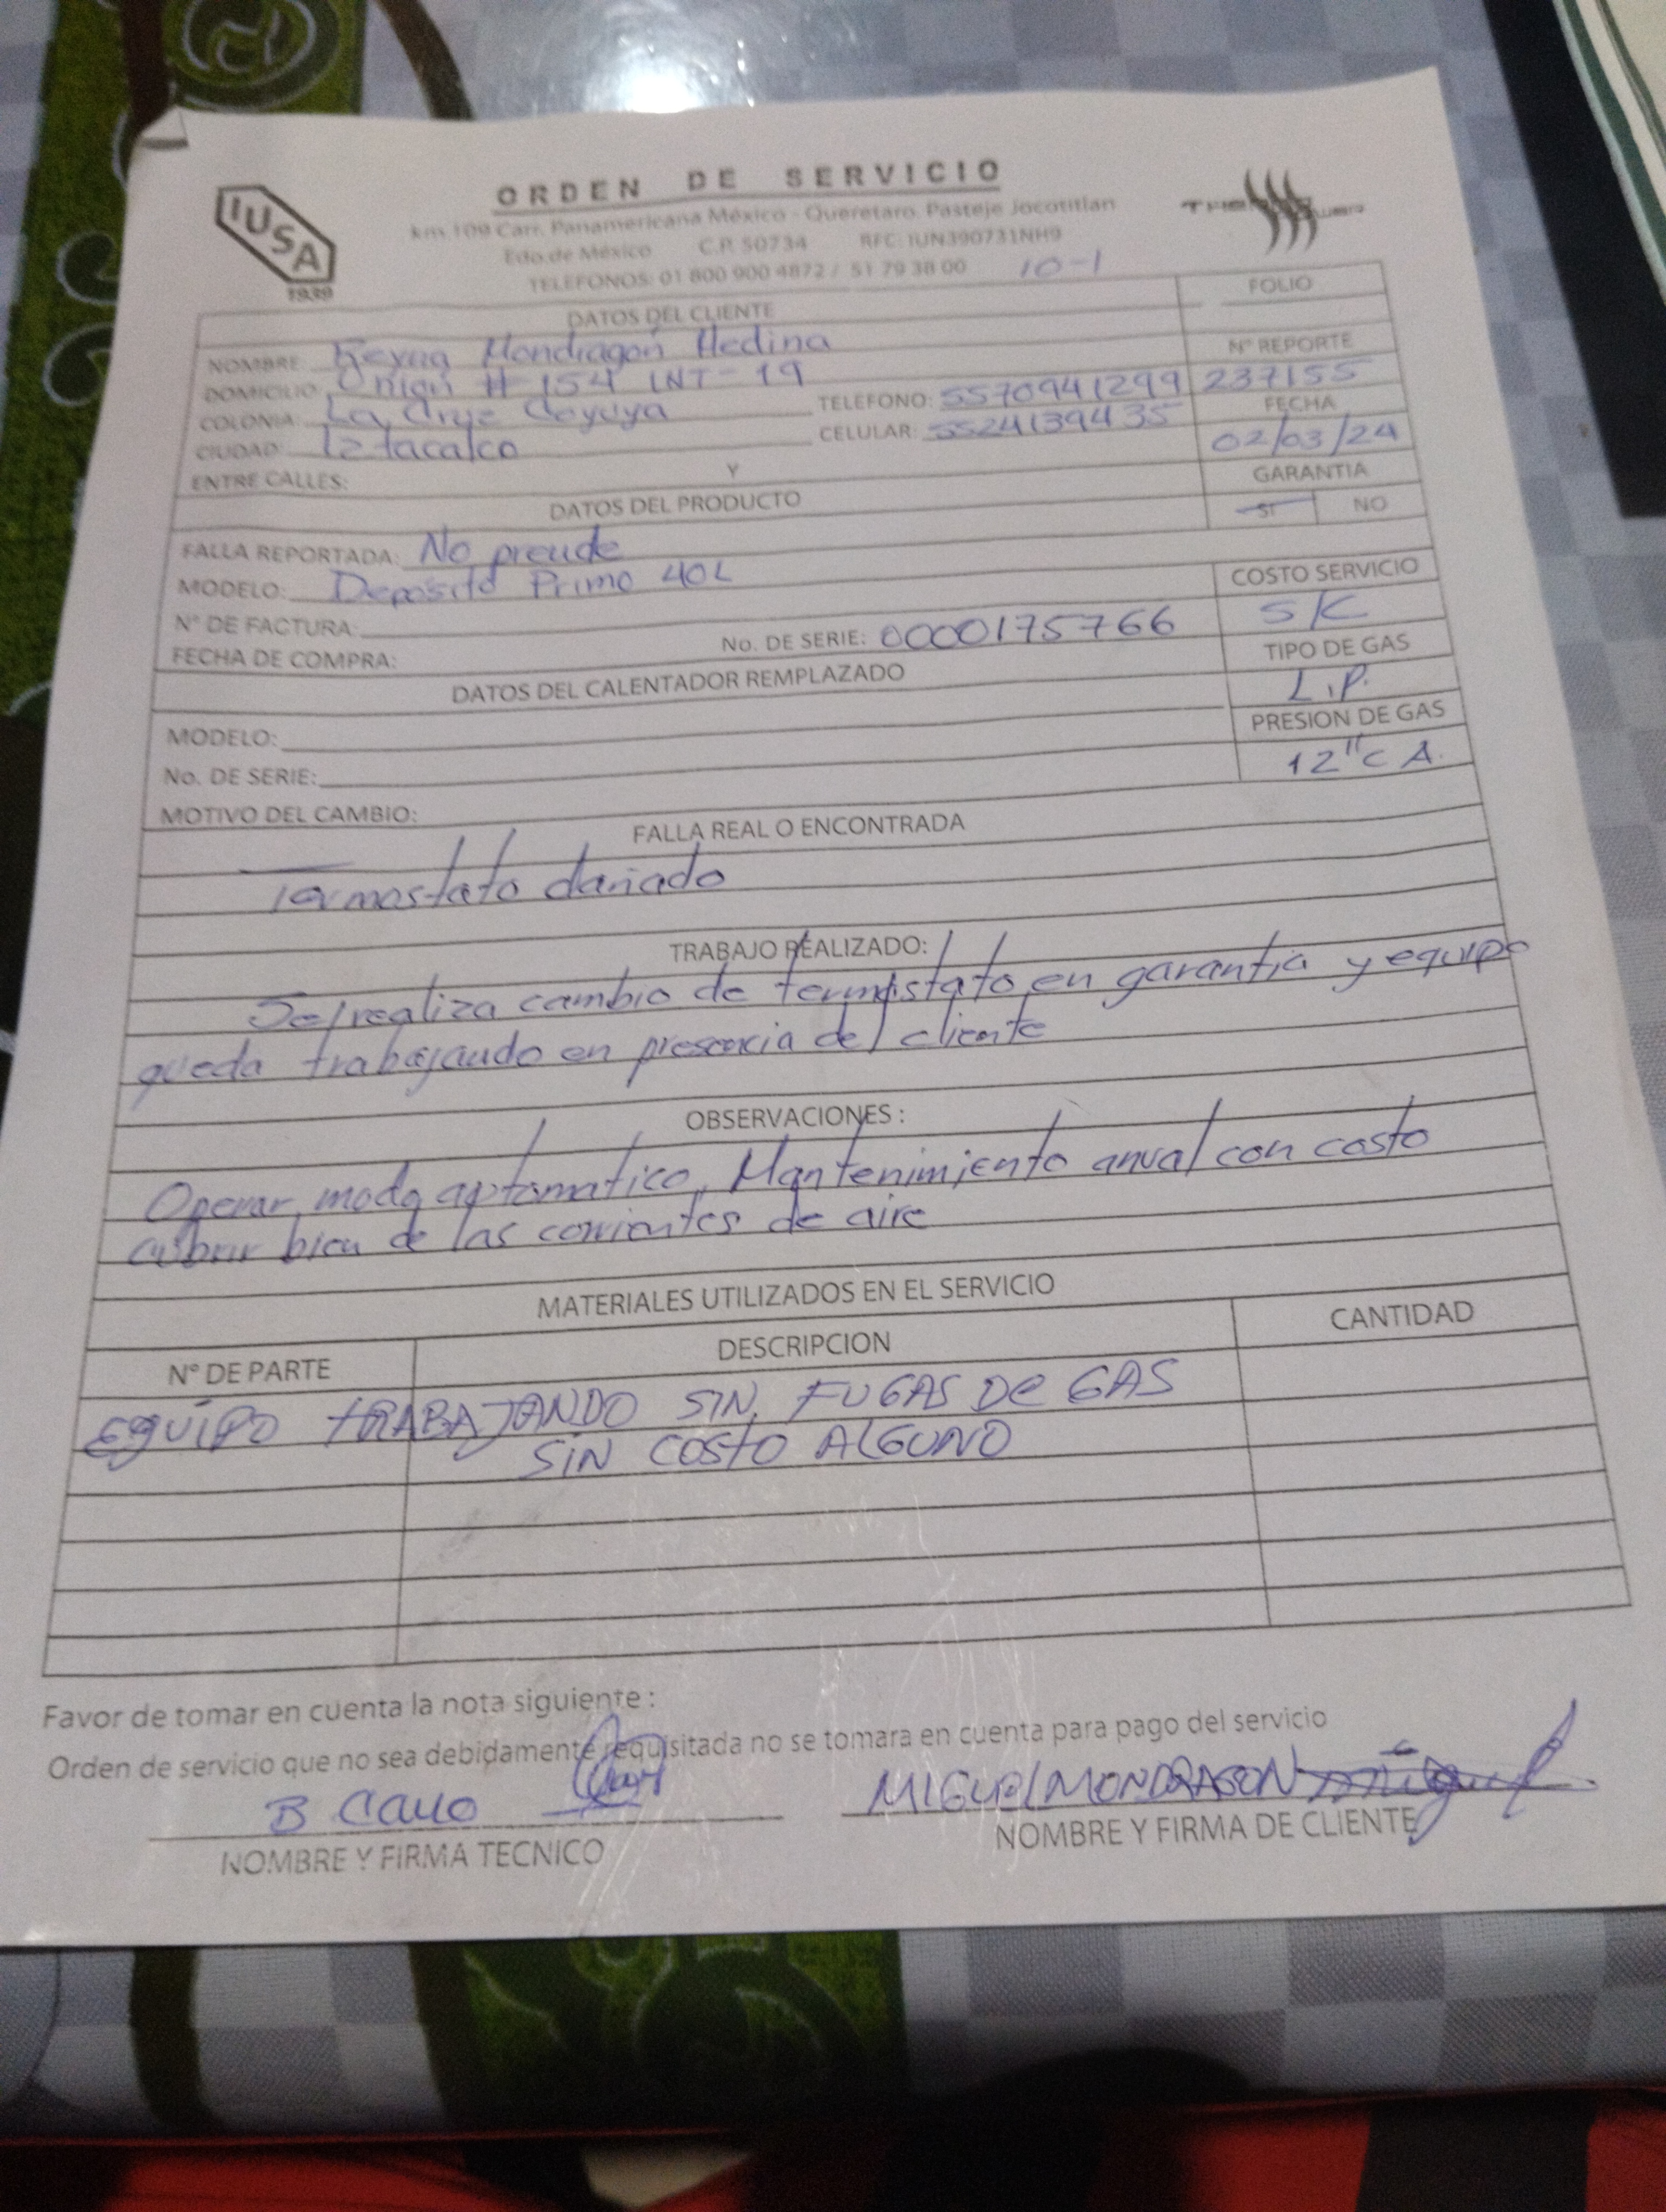 IUSA
1939
ORDEN DE SERVICIO
km 109 Carr. Panamericana México - Queretaro. Pasteje Jocotitlan
Edo de México C.P. 50734 RFC: IUN390731NH9
TELEFONOS: 01 800 900 4872 / 51 79 38 00 10-1
DATOS DEL CLIENTE
FOLIO
NOMBRE: Reyna Mondragón Medina
Nº REPORTE
237155
DOMICILIO: Unión # 154 INT-19
TELEFONO: 5570941299
COLONIA: La Cruz Coyuya
CELULAR: 5524139435
FECHA
02/03/24
CIUDAD: Iztacalco
ENTRE CALLES: Y
GARANTIA
SI NO
DATOS DEL PRODUCTO
FALLA REPORTADA: No prende
MODELO: Deposito Primo 40L
COSTO SERVICIO
S/C
Nº DE FACTURA:
No. DE SERIE: 00001175766
FECHA DE COMPRA:
TIPO DE GAS
L.P.
DATOS DEL CALENTADOR REMPLAZADO
MODELO:
PRESION DE GAS
12" C A.
No. DE SERIE:
MOTIVO DEL CAMBIO:
FALLA REAL O ENCONTRADA
Termostato dañado
TRABAJO REALIZADO:
Se realiza cambio de termostato en garantia y equipo
queda trabajando en presencia del cliente
OBSERVACIONES :
Operar modo automatico, Mantenimiento anual con costo
cubrir bien de las corrientes de aire
MATERIALES UTILIZADOS EN EL SERVICIO
Nº DE PARTE DESCRIPCION CANTIDAD
EQUIPO TRABAJANDO SIN FUGAS DE GAS
SIN COSTO ALGUNO
Favor de tomar en cuenta la nota siguiente :
Orden de servicio que no sea debidamente requisitada no se tomara en cuenta para pago del servicio
MIGUEL MONDRAGON
NOMBRE Y FIRMA TECNICO
NOMBRE Y FIRMA DE CLIENTE